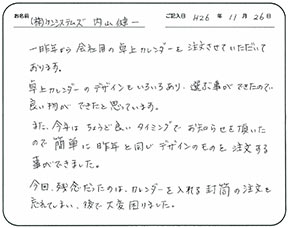 お名前 (株)ケンシステムズ 内山健一 ご記入日 H26 年 11 月 26 日
一昨年から会社用の卓上カレンダーを注文させていただいて
おります。
卓上カレンダーのデザインもいろいろあり、選ぶ事ができたので
良い物ができたと思っています。
また、今年はちょうど良いタイミングでお知らせを頂いた
ので簡単に昨年と同じデザインのものを注文する
事ができました。
今回、残念だったのは、カレンダーを入れる封筒の注文も
忘れてしまい、後で大変困りました。